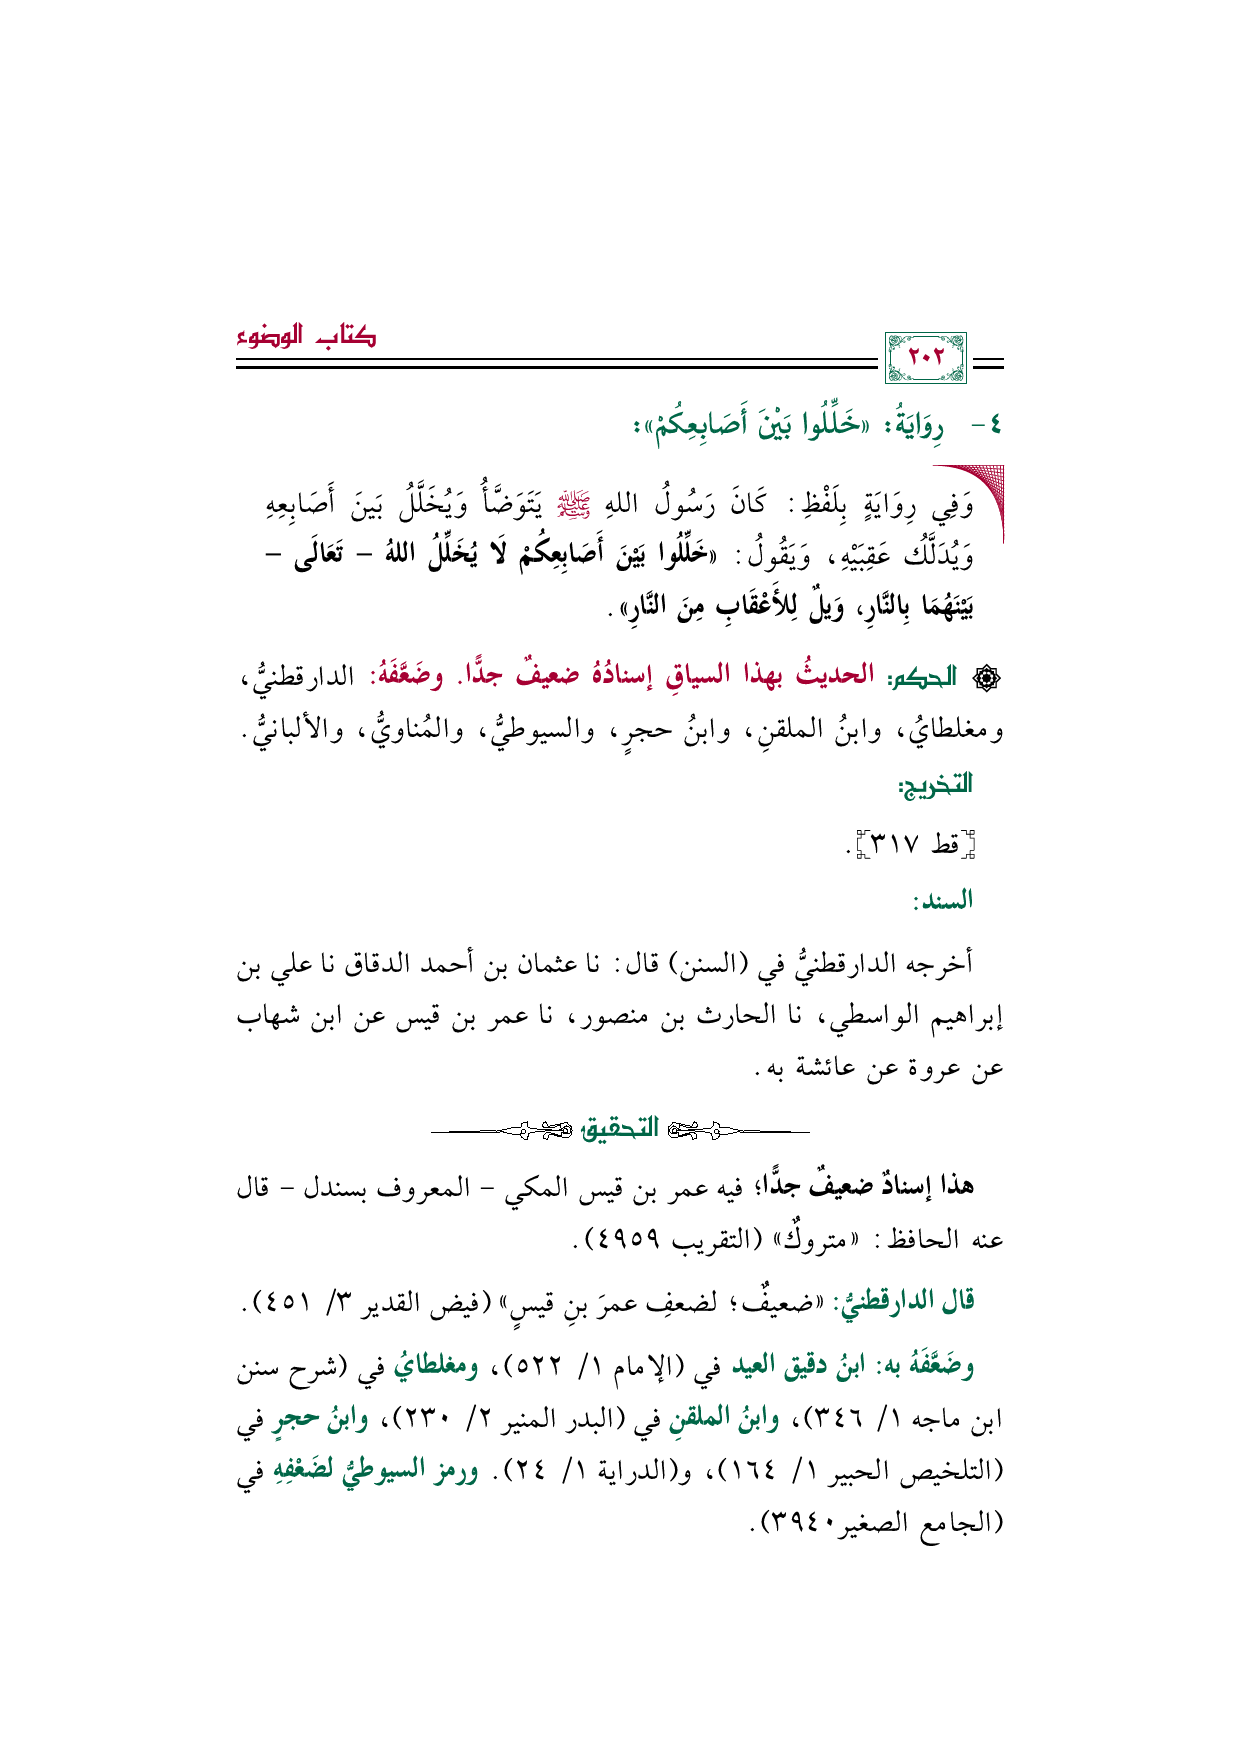 كتاب الوضوء
٢٠٢
٤- رِوَايَةُ: «خَلِّلُوا بَيْنَ أَصَابِعِكُمْ»:
وَفِي رِوَايَةٍ بِلَفْظِ: كَانَ رَسُولُ اللهِ ﷺ يَتَوَضَّأُ وَيُخَلَّلُ بَينَ أَصَابِعِهِ
وَيُدَلَّكُ عَقِبَيْهِ، وَيَقُولُ: «خَلِّلُوا بَيْنَ أَصَابِعِكُمْ لَا يُخَلِّلُ اللهُ – تَعَالَى –
بَيْنَهُمَا بِالنَّارِ، وَيلٌ لِلأَعْقَابِ مِنَ النَّارِ».
الحكم: الحديثُ بهذا السياقِ إسنادُهُ ضعيفٌ جدًّا. وضَعَّفَهُ: الدارقطنيُّ،
ومغلطايُ، وابنُ الملقنِ، وابنُ حجرٍ، والسيوطيُّ، والمُناويُّ، والألبانيُّ.
التخريج:
[قط ٣١٧].
السند:
أخرجه الدارقطنيُّ في (السنن) قال: نا عثمان بن أحمد الدقاق نا علي بن
إبراهيم الواسطي، نا الحارث بن منصور، نا عمر بن قيس عن ابن شهاب
عن عروة عن عائشة به.
التحقيق
هذا إسنادٌ ضعيفٌ جدًّا؛ فيه عمر بن قيس المكي – المعروف بسندل – قال
عنه الحافظ: «متروكٌ» (التقريب ٤٩٥٩).
قال الدارقطنيُّ: «ضعيفٌ؛ لضعفِ عمرَ بنِ قيسٍ» (فيض القدير ٣/ ٤٥١).
وضَعَّفَهُ به: ابنُ دقيق العيد في (الإمام ١/ ٥٢٢)، ومغلطايُ في (شرح سنن
ابن ماجه ١/ ٣٤٦)، وابنُ الملقنِ في (البدر المنير ٢/ ٢٣٠)، وابنُ حجرٍ في
(التلخيص الحبير ١/ ١٦٤)، و(الدراية ١/ ٢٤). ورمز السيوطيُّ لضَعْفِهِ في
(الجامع الصغير٣٩٤٠).